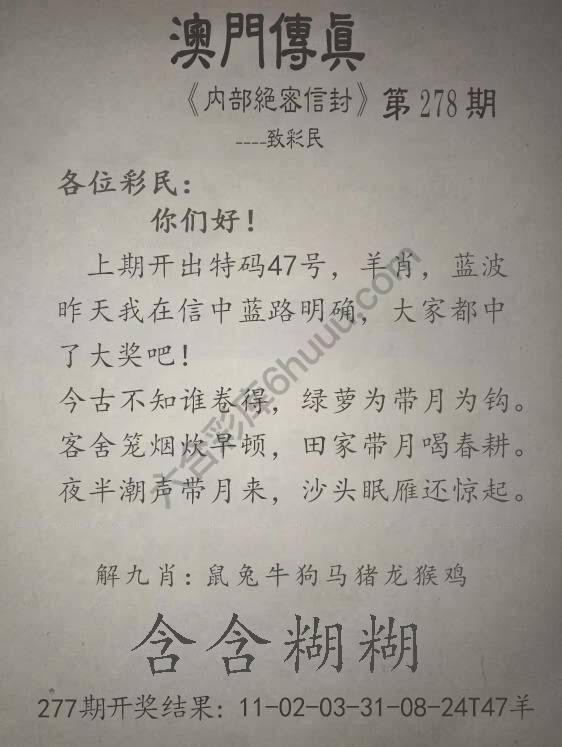 澳門傳真
《内部絕密信封》第278期
----致彩民
各位彩民：
你们好！
上期开出特码47号，羊肖，蓝波
昨天我在信中蓝路明确，大家都中
了大奖吧！
今古不知谁卷得，绿萝为带月为钩。
客舍笼烟炊早顿，田家带月喝春耕。
夜半潮声带月来，沙头眠雁还惊起。
解九肖：鼠兔牛狗马猪龙猴鸡
含含糊糊
277期开奖结果：11-02-03-31-08-24T47羊
六合彩库6huuu.com